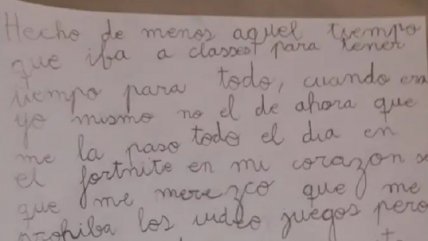 Hecho de menos aquel tiempo
que iba a classes para tener
tiempo para todo, cuando era
yo mismo no el de ahora que
me la paso todo el dia en
el fortnite en mi corazon se
que me merezco que me
prohiba los video juegos pero